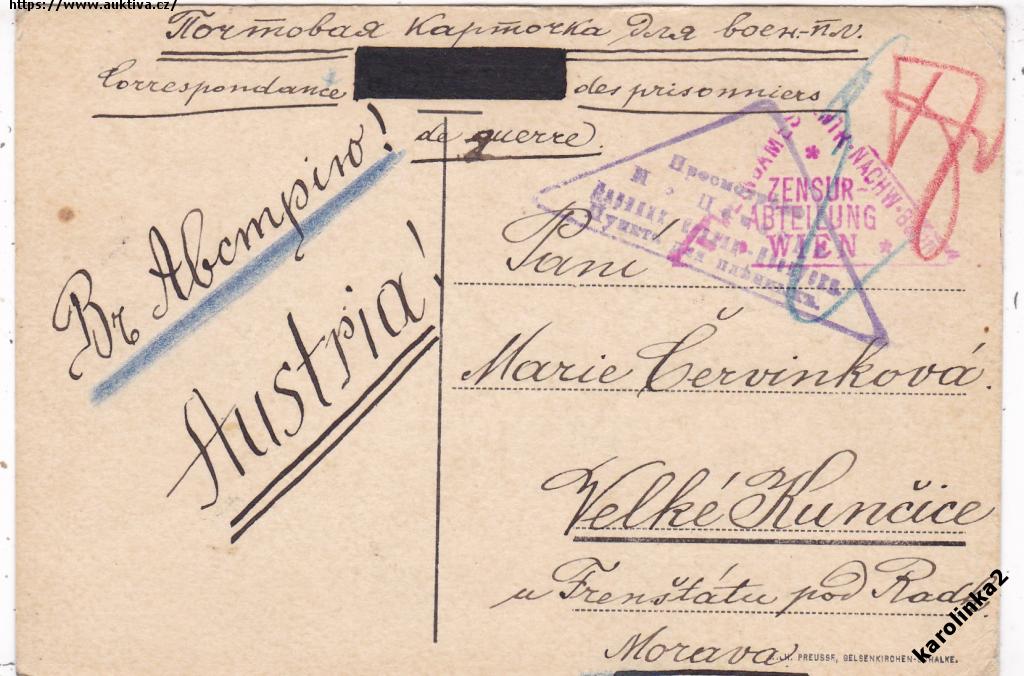 https://www.auktiva.cz/
Почтовая карточка для воен-пл.
Correspondance des prisonniers
de guerre.
Въ Австрiю!
Austria!
Просмотрено
ZENSUR-
ABTEILUNG
WIEN
Paní
Marie Červinková.
Velké Kunčice
u Frenštátu pod Radh.
Morava
PREUSSE, GELSENKIRCHEN-SCHALKE.
karolinka2